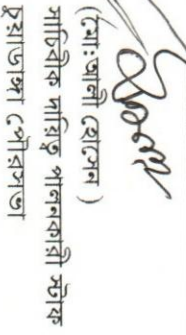 (মো:আলী হোসেন)
সাচিবিক দায়িত্ব পালনকারী স্টাফ
চুয়াডাঙ্গা পৌরসভা